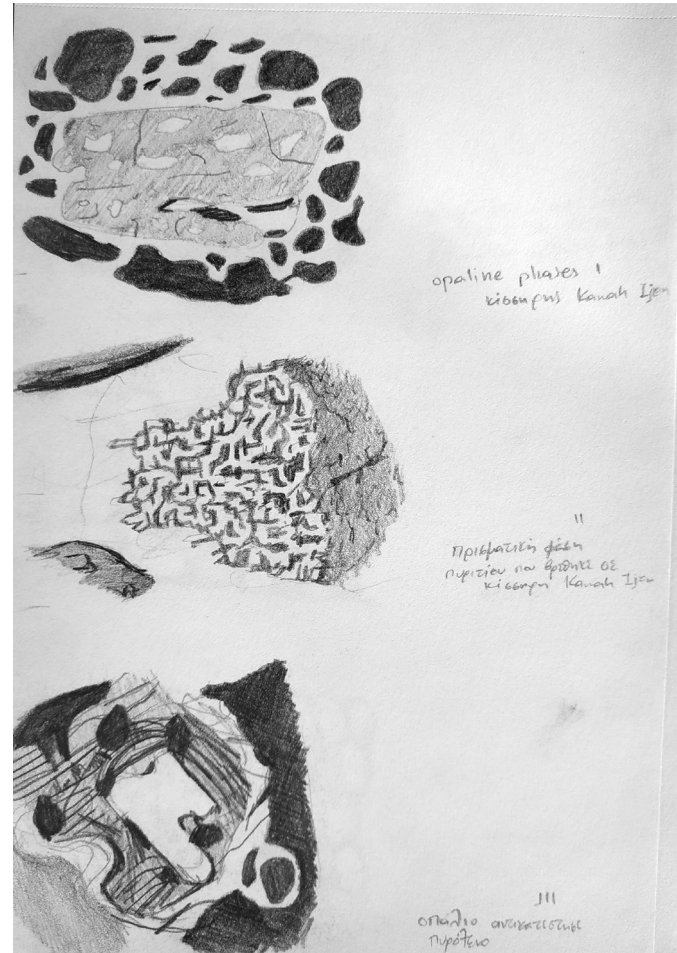 opaline phases I
κίσσηρις Kawah Ijen
II
Πρισματική φάση
πυριτίου που βρέθηκε σε
κίσσηρη Kawah Ijen
III
οπάλιο αντικατέστησε
πυρόξενο